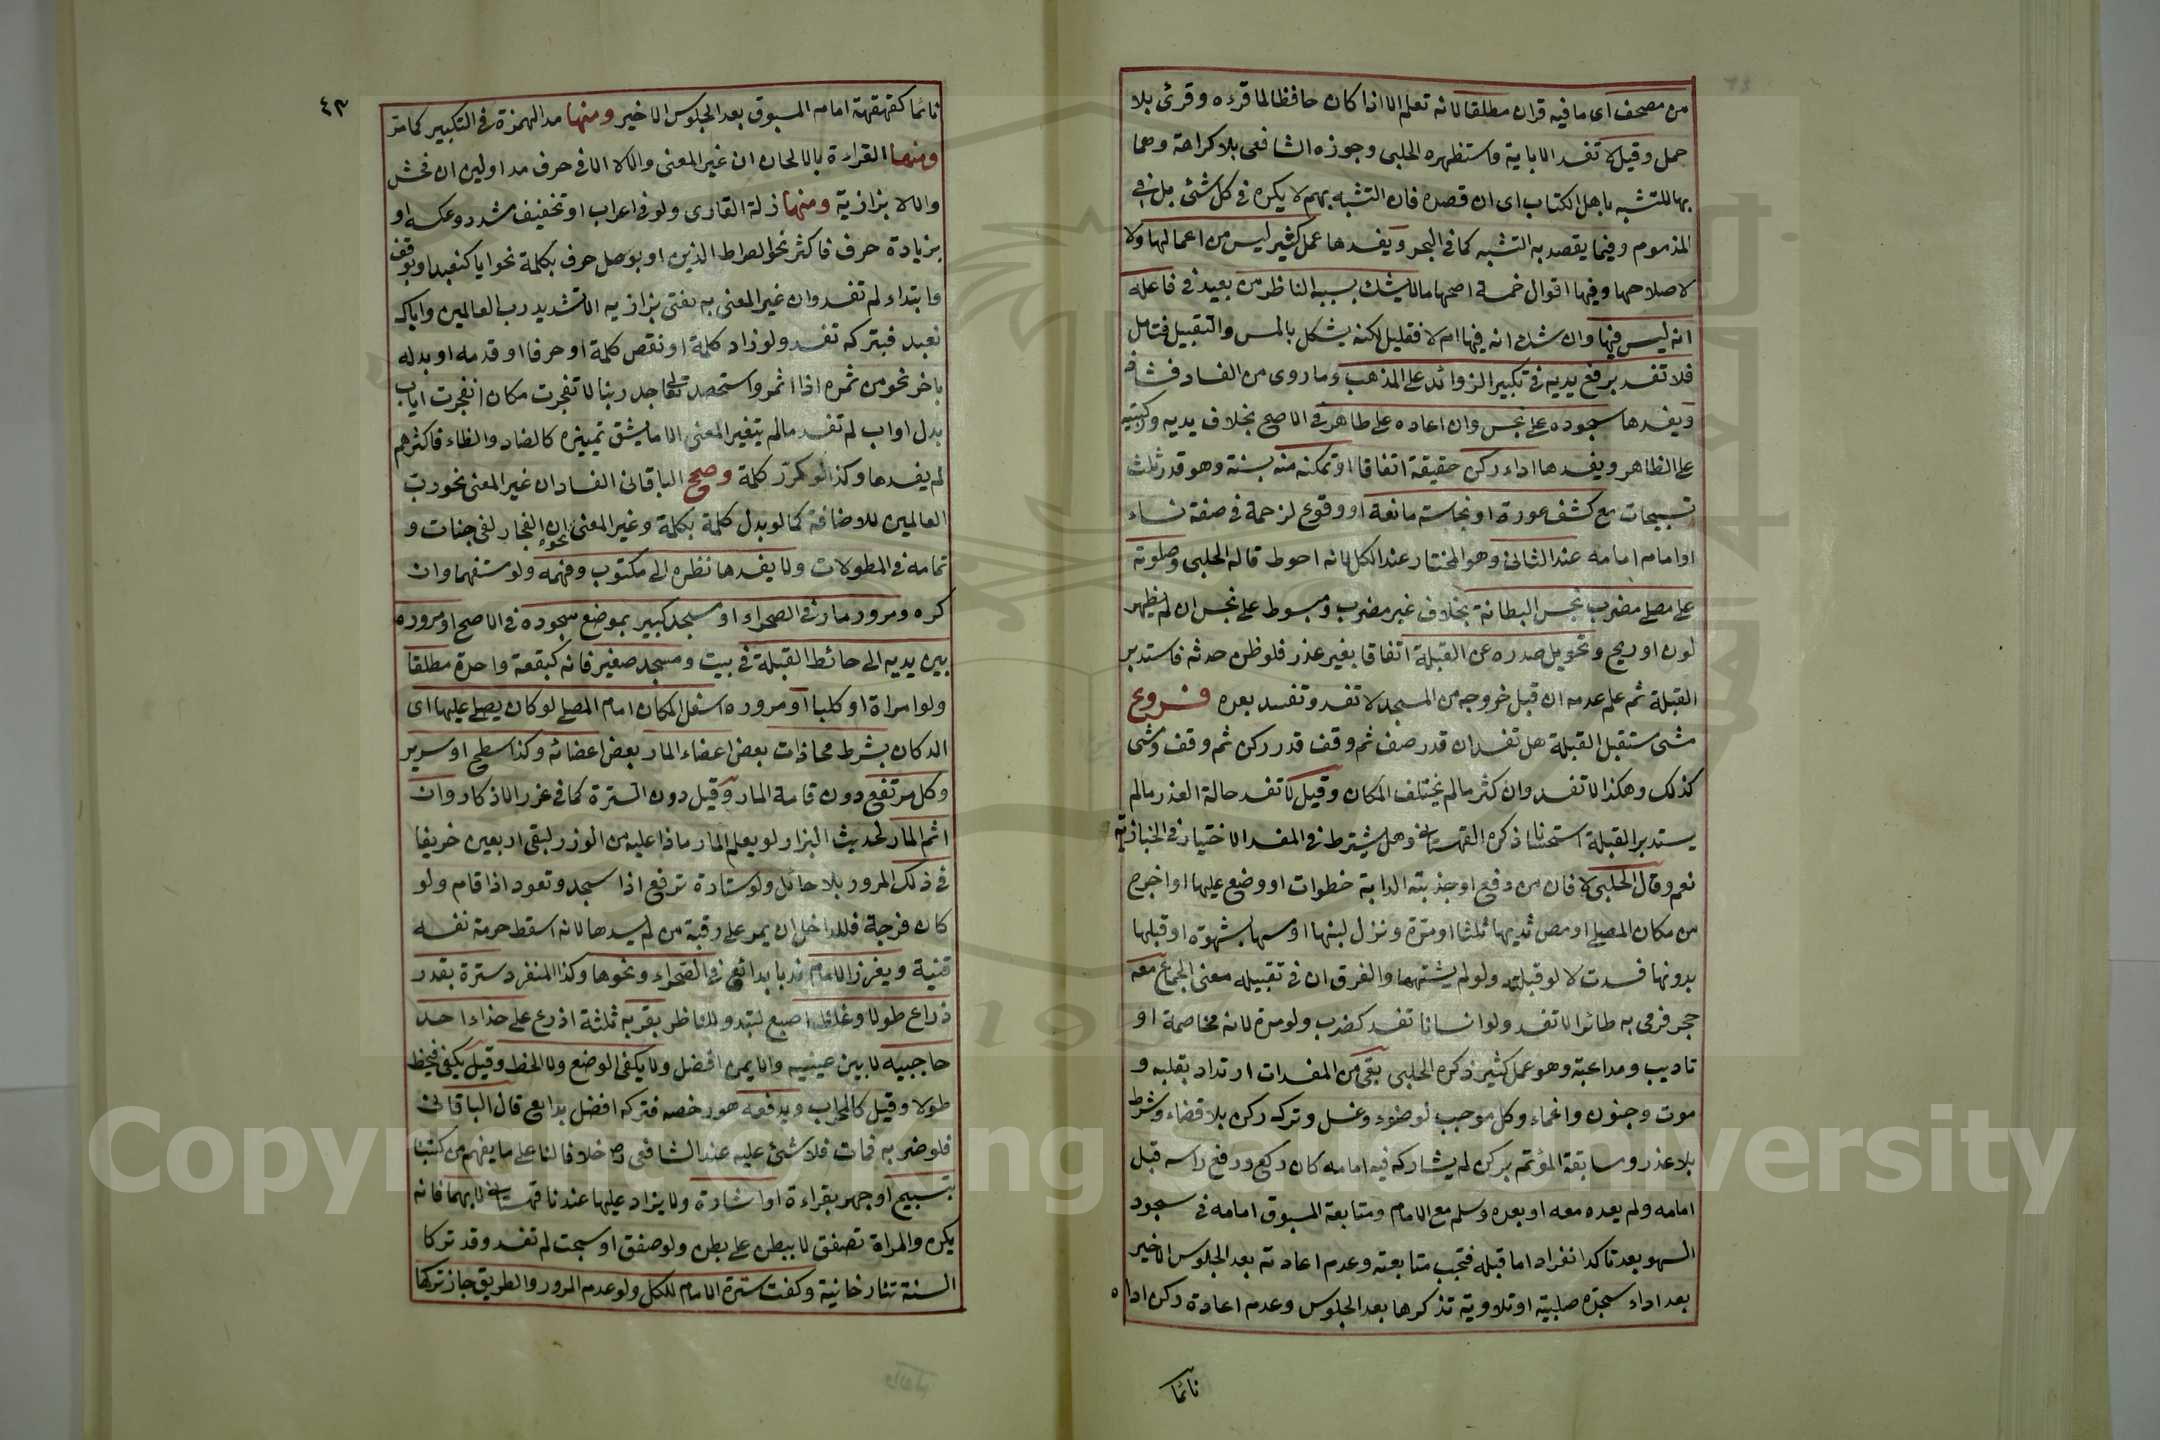 من مصحف اى ما فيه قران مطلقا لانه تعلم الا اذا كان حافظا لما قرءه وقرئ بلا
حمل وقيل لا تفسد الا باية واستظهره الحلبى وجوزه الشافعى بلا كراهة وهما
بها للتشبه باهل الكتاب اى ان قصده فان التشبه بهم لا يكره فى كل شئى بل فى
المذموم وفيما يقصد به التشبه كما فى البحر ويفسدها عمل كثير ليس من اعمالها ولا
لاصلاحها وفيها اقوال خمسة اصحها ما لا يشك بسببه الناظر من بعيد فى فاعله
انه ليس فيها وان شك انه فيها ام لا فقليل لكنه يشكل بالمس والتقبيل فتامل
فلا تفسد برفع يديه فى تكبير الزوائد على المذهب وما روى من الفساد فشاذ
ويفسدها سجوده على نجس وان اعاده على طاهر فى الاصح بخلاف يديه وركبتيه
على الظاهر ويفسدها اداء ركن حقيقة اتفاقا او تمكنه منه بسنة وهو قدر ثلث
تسبيحات مع كشف عورة او نجاسة مانعة او وقوع لزحمة فى صفة نساء
او امام امامه عند الثانى وهو المختار عند الكل لانه احوط قاله الحلبى وصلوته
على مصلى مضرب نجس البطانة بخلاف غير مضرب ومبسوط على نجس ان لم يظهر
لون او ريح وتحويل صدره عن القبلة اتفاقا بغير عذر فلو ظن حدثه فاستدبر
القبلة ثم علم عدمه ان قبل خروجه من المسجد لا تفسد وتفسد بعده فروع
مشى مستقبل القبلة هل تفسد ان قدر صف ثم وقف قدر ركن ثم وقف ومشى
كذلك وهكذا لا تفسد وان كثر ما لم يختلف المكان وقيل لا تفسد حالة العذر ما لم
يستدبر القبلة استحسانا ذكره القهستانى وهل يشترط فى المفسد الاختيار فى الخبازية
نعم وقال الحلبى لا فان من دفع او جذبته الدابة خطوات او وضع عليها او اخرج
من مكان المصلى او مص ثديها ثلثا او مرة ونزل لبنها او مسها بشهوة او قبلها
بدونها فسدت لا لو قبلته ولو لم يشتهها والفرق ان فى تقبيله معنى الجماع معه
حجر فرمى به طائرا لا تفسد ولو انسانا تفسد كضرب ولو مرة لانه مخاصمة او
تاديب ومداعبة وهو عمل كثير ذكره الحلبى بقى من المفسدات ارتداد بقلبه و
موت وجنون واغماء وكل موجب لوضوء وغسل وترك ركن بلا قضاء وشرط
بلا عذر ومسابقة المؤتم بركن لم يشاركه فيه امامه كان ركع ورفع راسه قبل
امامه ولم يعده معه او بعده وسلم مع الامام ومتابعة المسبوق امامه فى سجود
السهو بعد تاكد انفراده اما قبله فتجب متابعته وعدم اعادته بعد الجلوس الاخير
بعد اداء سجدة صلبية او تلاوية تذكرها بعد الجلوس وعدم اعادة ركن اداه
نائما
٤٣
نائما كقهقهة امامه المسبوق بعد الجلوس الاخير ومنها مد الهمزة فى التكبير كما مر
ومنها القراءة بالالحان ان غير المعنى والا لا الا فى حرف مد او لين ان فحش
والا لا بزازية ومنها زلة القارى ولو فى اعراب او تخفيف مشدد وعكسه او
بزيادة حرف فاكثر نحو الصراط الذين او بوصل حرف بكلمة نحو ايا كنعبد او بوقف
وابتداء لم تفسد وان غير المعنى به يفتى بزازيه الا تشديد رب العالمين واياك
نعبد فبتركه تفسد ولو زاد كلمة او نقص كلمة او حرفا او قدمه او بدله
باخر نحو من ثمره اذا اثمر واستحصد تعالى جد ربنا لا تفجرت مكان انفجرت اياب
بدل اواب لم تفسد ما لم يتغير المعنى الا ما يشق تمييزه كالضاد والظاء فاكثرهم
لم يفسدها وكذا لو كرر كلمة وصح الباقانى الفساد ان غير المعنى نحو رب
العالمين للاضافة كما لو بدل كلمة بكلمة وغير المعنى نحو ان الفجار لفى جنات و
تمامه فى المطولات ولا يفسدها نظره الى مكتوب وفهمه ولو مستفهما وان
كره ومرور مار فى الصحراء او مسجد كبير بموضع سجوده فى الاصح او مروره
بين يديه الى حائط القبلة فى بيت ومسجد صغير فانه كبقعة واحدة مطلقا
ولو امراة او كلبا او مروره اسفل المكان امام المصلى لو كان يصلى عليها اى
الدكان بشرط محاذات بعض اعضاء المار بعض اعضائه وكذا سطح او سرير
وكل مرتفع دون قامة المار وقيل دون السترة كما فى غرر الاذكار وان
اثم المار لحديث البزار لو يعلم المار ماذا عليه من الوزر لبقى اربعين خريفا
فى ذلك المرور بلا حائل ولو ستارة ترفع اذا سجد وتعود اذا قام ولو
كان فرجة فللداخل ان يمر على رقبة من لم يسدها لانه اسقط حرمة نفسه
قنية ويغرز الامام ندبا بدائع فى الصحراء ونحوها وكذا المنفرد سترة بقدر
ذراع طولا وغلظ اصبع لتبدو للناظر بقربه ثلثة اذرع على حذاء احد
حاجبيه لا بين عينيه والايمن افضل ولا يكفى الوضع ولا الخط وقيل يكفى فيخط
طولا وقيل كالمحراب ويدفعه هو رخصه فتركه افضل بدايع قال الباقانى
فلو ضربه فمات فلا شئ عليه عند الشافعى رض خلافا لنا على ما يفهم من كتبنا
بتسبيح او جهر بقراءة او اشارة ولا يزاد عليها عندنا قهستانى لا بهما فانه
يكره والمراة تصفق لا ببطن على بطن ولو صفق او سبحت لم تفسد وقد تركا
السنة تتارخانية وكفت سترة الامام للكل ولو عدم المرور والطريق جاز تركها
Copyright © King Saud University